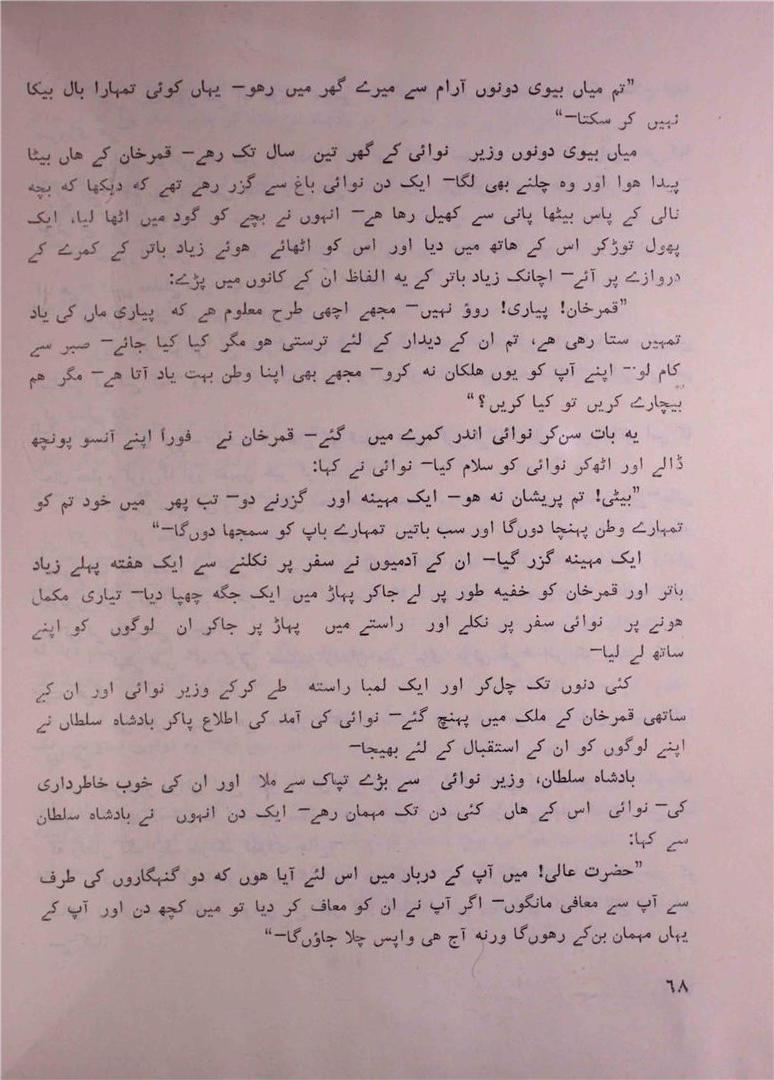 ”تم میاں بیوی دونوں آرام سے میرے گھر میں رھو— یہاں کوئی تمہارا بال بیکا
نہیں کر سکتا—“
میاں بیوی دونوں وزیر نوائی کے گھر تین سال تک رھے— قمرخان کے ھاں بیٹا
پیدا ھوا اور وہ چلنے بھی لگا— ایک دن نوائی باغ سے گزر رھے تھے کہ دیکھا کہ بچہ
نالی کے پاس بیٹھا پانی سے کھیل رھا ھے— انہوں نے بچے کو گود میں اٹھا لیا، ایک
پھول توڑکر اس کے ھاتھ میں دیا اور اس کو اٹھائے ھوئے زیاد باتر کے کمرے کے
دروازے پر آئے— اچانک زیاد باتر کے یہ الفاظ ان کے کانوں میں پڑے:
”قمرخان! پیاری! روؤ نہیں— مجھے اچھی طرح معلوم ھے کہ پیاری ماں کی یاد
تمہیں ستا رھی ھے، تم ان کے دیدار کے لئے ترستی ھو مگر کیا کیا جائے— صبر سے
کام لو— اپنے آپ کو یوں ھلکان نہ کرو— مجھے بھی اپنا وطن بہت یاد آتا ھے— مگر ھم
بیچارے کریں تو کیا کریں؟“
یہ بات سن‌کر نوائی اندر کمرے میں گئے— قمرخان نے فوراً اپنے آنسو پونچھ
ڈالے اور اٹھ‌کر نوائی کو سلام کیا— نوائی نے کہا:
”بیٹی! تم پریشان نہ ھو— ایک مہینہ اور گزرنے دو— تب پھر میں خود تم کو
تمہارے وطن پہنچا دوں‌گا اور سب باتیں تمہارے باپ کو سمجھا دوں‌گا—“
ایک مہینہ گزر گیا— ان کے آدمیوں نے سفر پر نکلنے سے ایک ھفتہ پہلے زیاد
باتر اور قمرخان کو خفیہ طور پر لے جاکر پہاڑ میں ایک جگہ چھپا دیا— تیاری مکمل
ھونے پر نوائی سفر پر نکلے اور راستے میں پہاڑ پر جاکر ان لوگوں کو اپنے
ساتھ لے لیا—
کئی دنوں تک چل‌کر اور ایک لمبا راستہ طے کرکے وزیر نوائی اور ان کے
ساتھی قمرخان کے ملک میں پہنچ گئے— نوائی کی آمد کی اطلاع پاکر بادشاہ سلطاں نے
اپنے لوگوں کو ان کے استقبال کے لئے بھیجا—
بادشاہ سلطان، وزیر نوائی سے بڑے تپاک سے ملا اور ان کی خوب خاطرداری
کی— نوائی اس کے ھاں کئی دن تک مہمان رھے— ایک دن انہوں نے بادشاہ سلطان
سے کہا:
”حضرت عالی! میں آپ کے دربار میں اس لئے آیا ھوں کہ دو گنہگاروں کی طرف
سے آپ سے معافی مانگوں— اگر آپ نے ان کو معاف کر دیا تو میں کچھ دن اور آپ کے
یہاں مہمان بن‌کے رھوں‌گا ورنہ آج ھی واپس چلا جاؤں‌گا—“
٦٨